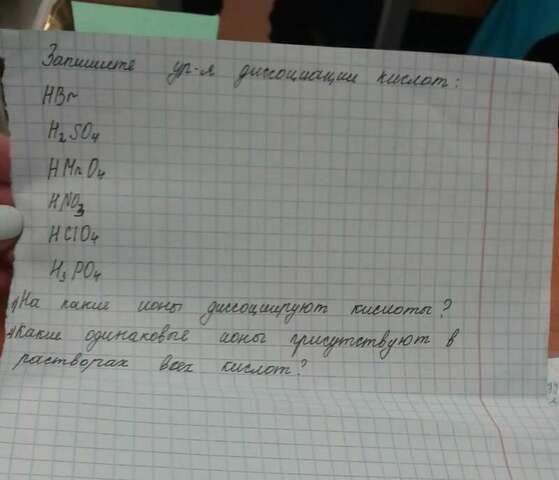 Запишите ур-я диссоциации кислот:
HBr
H₂SO₄
HMnO₄
HNO₃
HClO₄
H₃PO₄
1) На какие ионы диссоциируют кислоты?
2) Какие одинаковые ионы присутствуют в
растворах всех кислот?